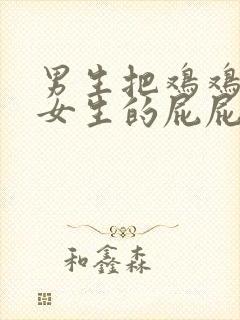 男生把鸡鸡
女生的屁屁
和鑫森